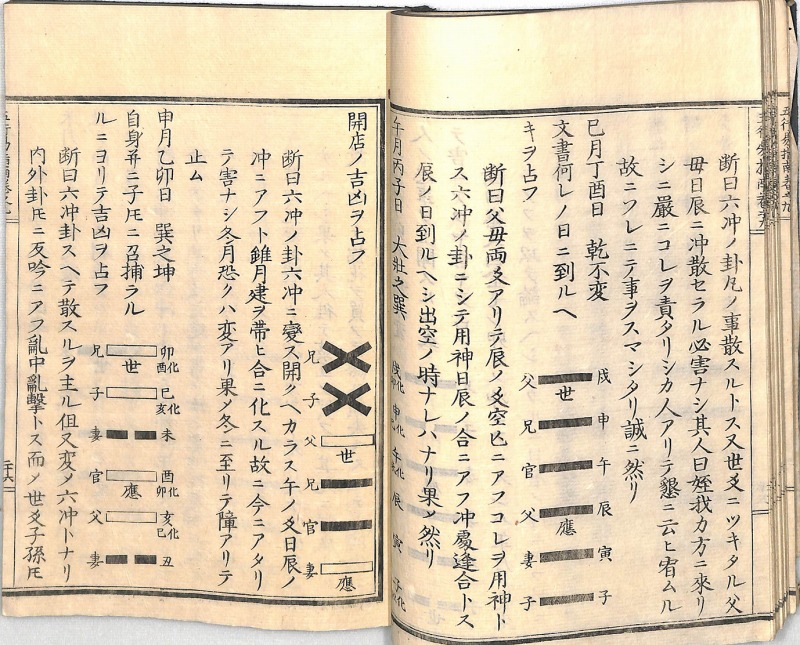 断曰六沖ノ卦凡ノ事散スルトス又世爻ニツキタル父
毋日辰ニ冲散セラル必害ナシ其人曰姪我カ方ニ來リ
シニ嚴ニコレヲ責タリシカ人アリテ懇ニ云ヒ宥ムル
故ニソレニテ事ヲスマシタリ誠ニ然リ
巳月丁酉日 乾不変
文書何レノ日ニ到ルヘ
キヲ占フ
父 世 戌
兄 申
官 午
父 應 辰
妻 寅
子 子
断曰父毋両爻アリテ辰ノ爻空亡ニアフコレヲ用神ト
ス六冲ノ卦ニシテ用神日辰ノ合ニアフ冲處逢合トス
辰ノ日到ルヘシ出空ノ時ナレハナリ果メ然リ
午月丙子日 大壮之巽
開店ノ吉凶ヲ占フ
兄 戌化
子 申化
父 世 午化
兄 辰
官 寅
妻 應 子化
断曰六沖ノ卦六冲ニ変ス開クヘカラス午ノ爻日辰ノ
冲ニアフト雖月建ヲ帯ヒ合ニ化スル故ニ今ニアタリ
テ害ナシ冬月恐クハ変アリ果メ冬ニ至リテ障アリテ
止ム
申月乙卯日 巽之坤
自身并ニ子𪜈ニ召捕ラル
ルニヨリテ吉凶ヲ占フ
兄 世 卯化酉
子 巳化亥
妻 未
官 應 酉化卯
父 亥化巳
妻 丑
断曰六冲卦スヘテ散スルヲ主ル但又変メ六冲トナリ
内外卦𪜈ニ反吟ニアフ亂中亂擊トス而メ世爻子孫𪜈